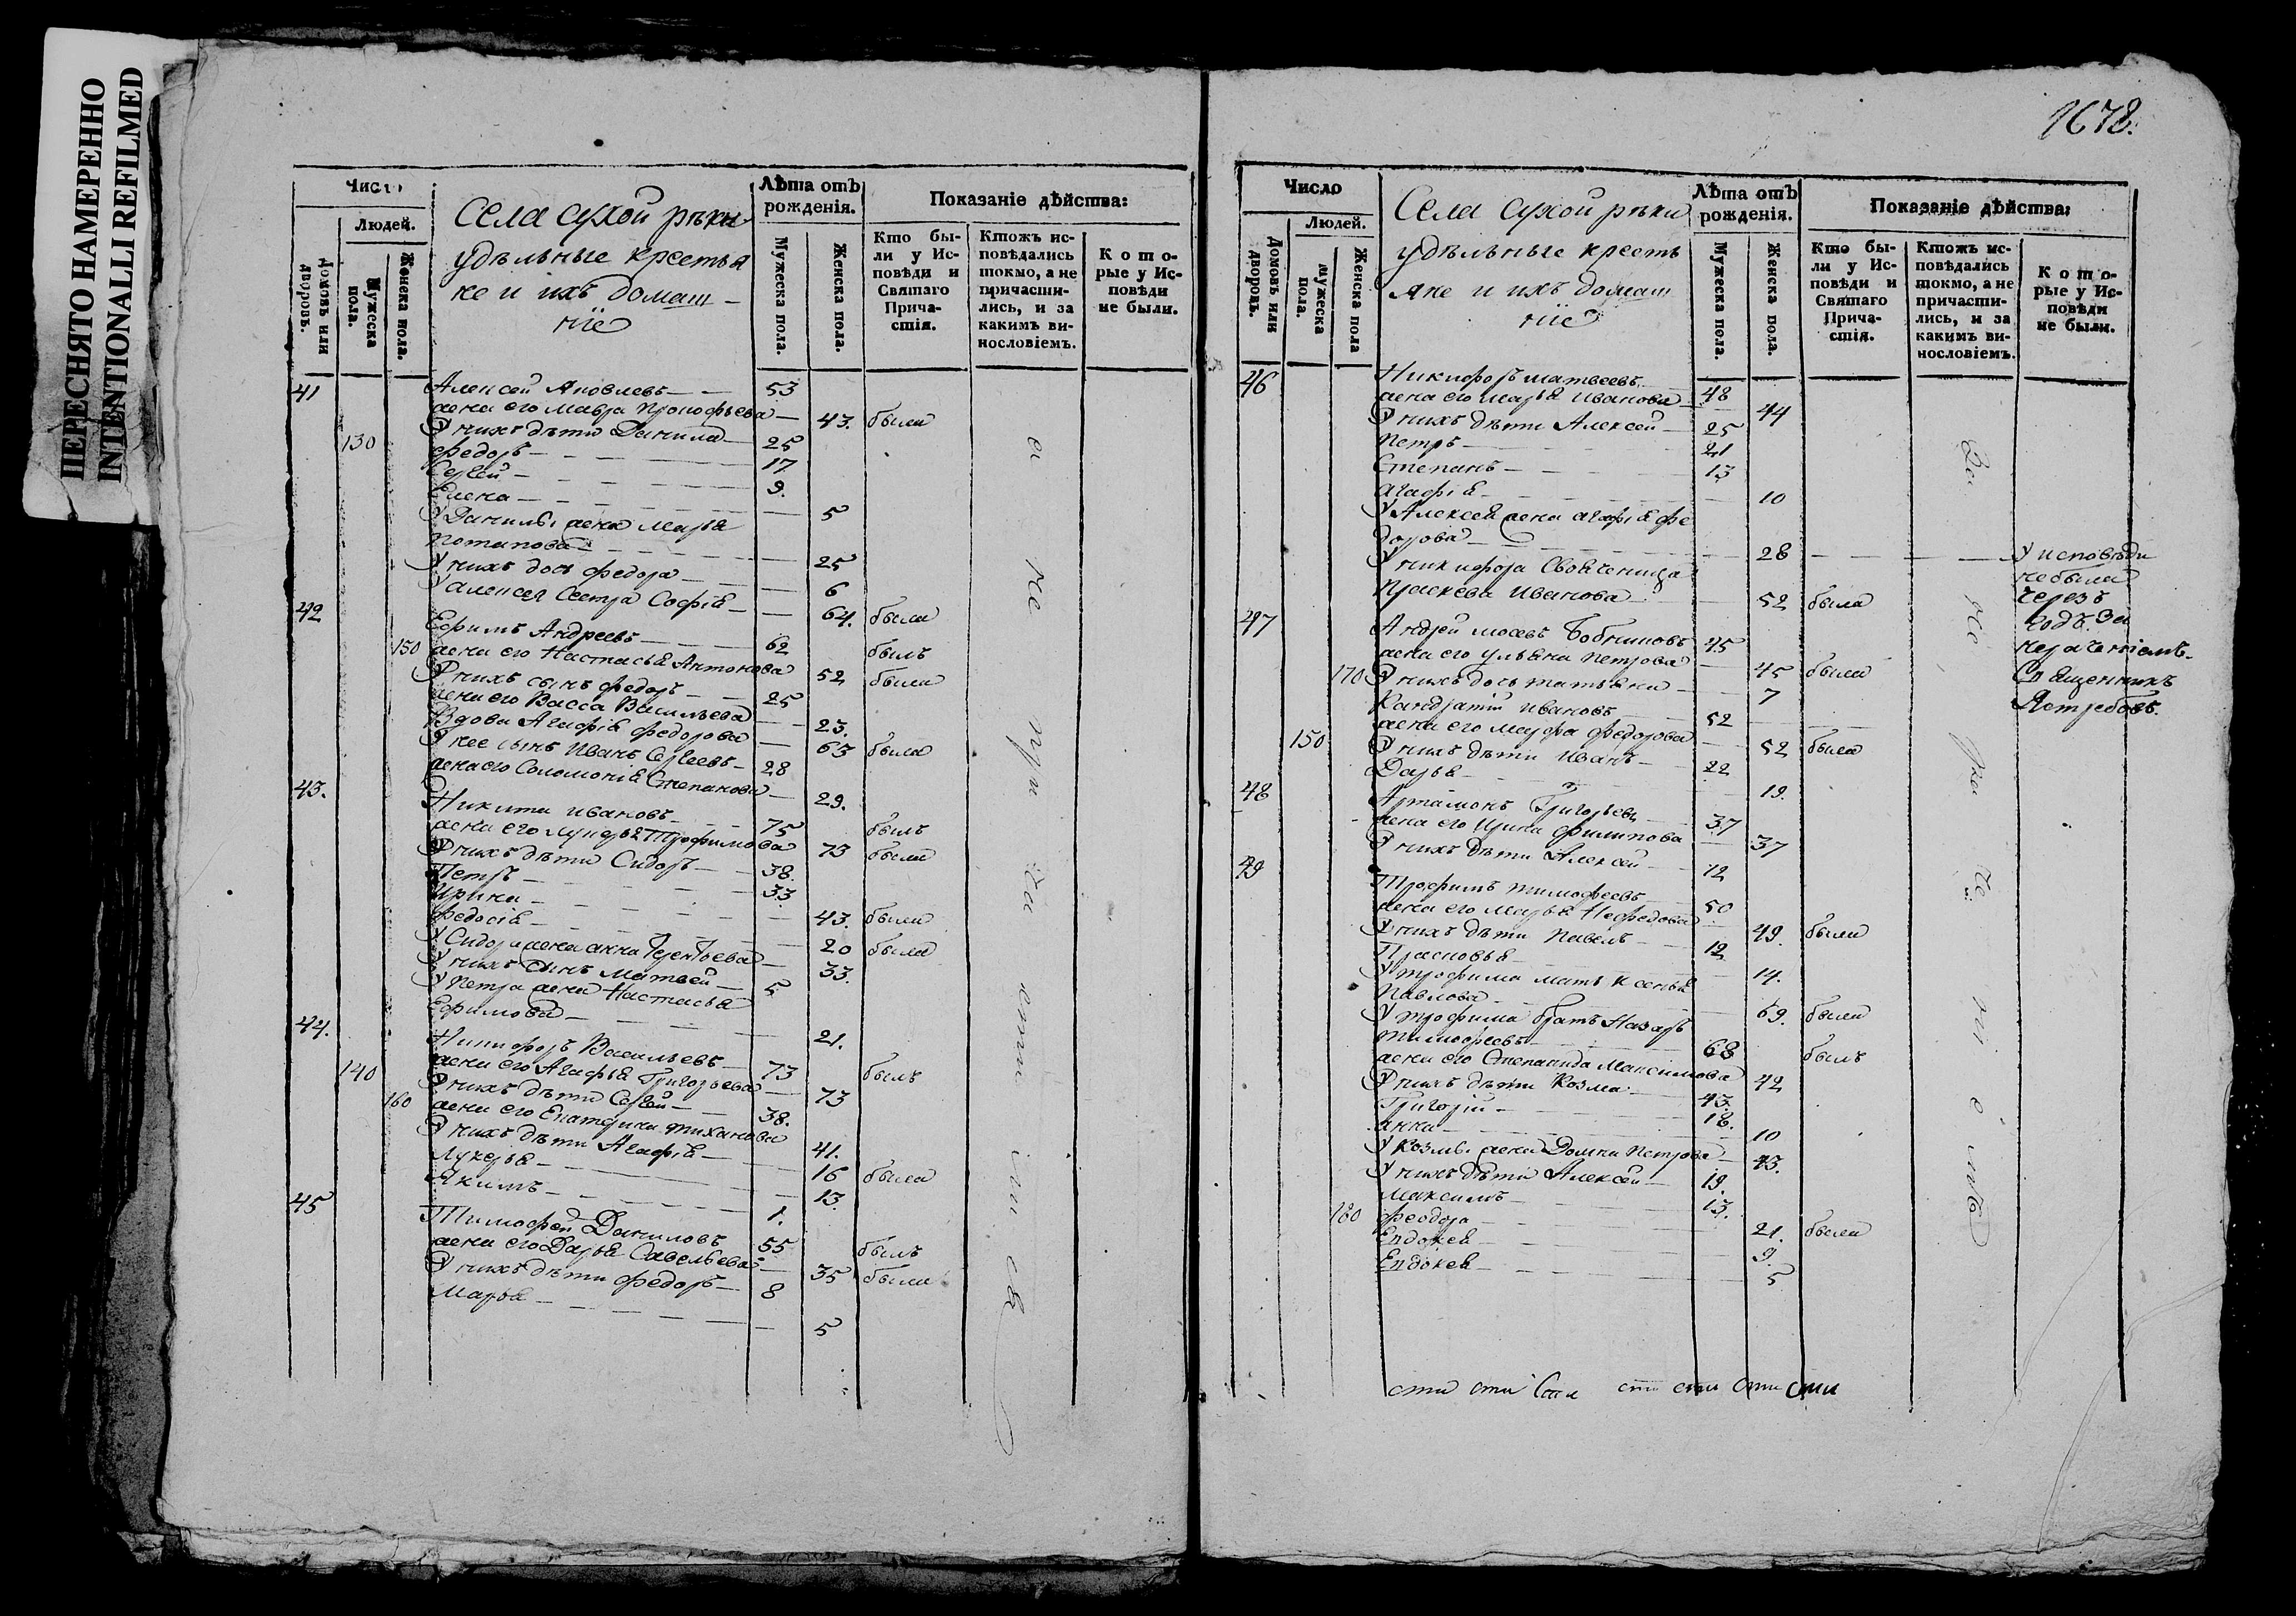 ПЕРЕСНЯТО НАМЕРЕННО
INTENTIONALLI REFILMED
Числ
Людей.
Домовъ или дворовъ.
Мужеска пола.
Женска пола.
Села сухой рѣки
удѣльные крестья
не и ихъ домаш-
ніе
Лѣта отъ рожденія.
Мужеска пола.
Женска пола.
Показаніе дѣйства:
Кто бы-
ли у Ис-
повѣди и
Святаго
Прича-
стія.
Ктожъ ис-
повѣдались
токмо, а не
причасти-
лись, и за
какимъ ви-
нословіемъ.
Кото-
рые у Ис-
повѣди
не были.
41 Алексей Яковлевъ 53
жена его Мавра Прокофьева 43. была
130 У нихъ дѣти Данила 25
Федоръ 17
Сергей 9.
Елена 5
У Данилы жена Марья
Потапова 25
У нихъ дочь Федора 6
У Алексея сестра Софія 64. была
42 Ефимъ Андреевъ 62 былъ
150 жена его Настасья Антонова 52 была
У нихъ сынъ Федоръ 25
жена его Васса Васильева 23.
Вдова Агафія Федорова 63 была
У нее сынъ Иванъ Сергеевъ 28
жена его Соломонія Степанова 29.
43. Никита Ивановъ 75 былъ
жена его Лукерья Трофимова 73 была
У нихъ дѣти Сидоръ 38.
Петръ 33
Ирина 43. была
Федосія 20 была
У Сидора жена Анна Терентьева 33.
У нихъ сынъ Матвей 5
У Петра жена Настасья
Ефимова 21.
44. Никифоръ Васильевъ 73 былъ
140 жена его Агафья Григорьева 73
У нихъ дѣти Сергей 38.
160 жена его Екатерина Тиханова 41.
У нихъ дѣти Агафія 16 была
Лукерья 13.
Якимъ 1.
45 Тимофей Даниловъ 55 былъ
жена его Дарья Савельева 35 была
У нихъ дѣти Федоръ 8
Марья 5
1678.
Число
Людей.
Домовъ или дворовъ.
Мужеска пола.
Женска пола
Села сухой рѣки
удѣльные кресть
яне и ихъ домаш
ніе
Лѣта отъ рожденія.
Мужеска пола.
Женска пола.
Показаніе дѣйства:
Кто бы-
ли у Ис-
повѣди и
Святаго
Прича-
стія.
Ктожъ ис-
повѣдались
токмо, а не
причасти-
лись, и за
какимъ ви-
нословіемъ.
Кото-
рые у Ис-
повѣди
не были.
46 Никифоръ Матвеевъ 48
жена его Марья Иванова 44
У нихъ дѣти Алексей 25
Петръ 21
Степанъ 13
Агафія 10
У Алексея жена Агафія Фе
дорова 28
У Никифора Свояченица
Праскева Иванова 52 была
У исповѣди
небыла
черезъ
годъ. За
нерачениемъ.
Священникъ
Ястребовъ.
47 Андрей Мосевъ Бобниковъ 45
жена его Ульяна Петрова 45 была
170 У нихъ дочь Татьяна 7
Кандратій Ивановъ 52
150 жена его Марфа Федорова 52 была
У нихъ дѣти Иванъ 22
Дарья 19.
48 Артамонъ Григорьевъ 37
жена его Ирина Филипова 37
У нихъ дѣти Алексей 12
49 Трофимъ Тимофеевъ 50
жена его Марья Нефедова 49. была
У нихъ дѣти Павелъ 12
Прасковья 14.
У Трофима мать Ксенья
Павлова 69. была
У Трофима братъ Назаръ
Тимофеевъ 68 былъ
жена его Степанида Максимова 42
У нихъ дѣти Козма 43.
Григорій 18.
Анна 10
У Козмы жена Домна Петрова 43.
У нихъ дѣти Алексей 19.
Максимъ 13.
180 Феодора 21. была
Евдокея 9.
Евдокея 5
сти сти сти сти сти сти сти